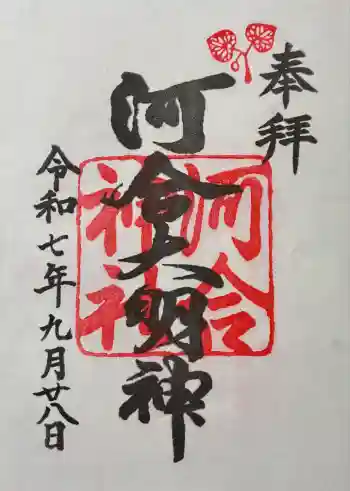 奉拝
河合大明神
河合
神社
令和七年九月廿八日